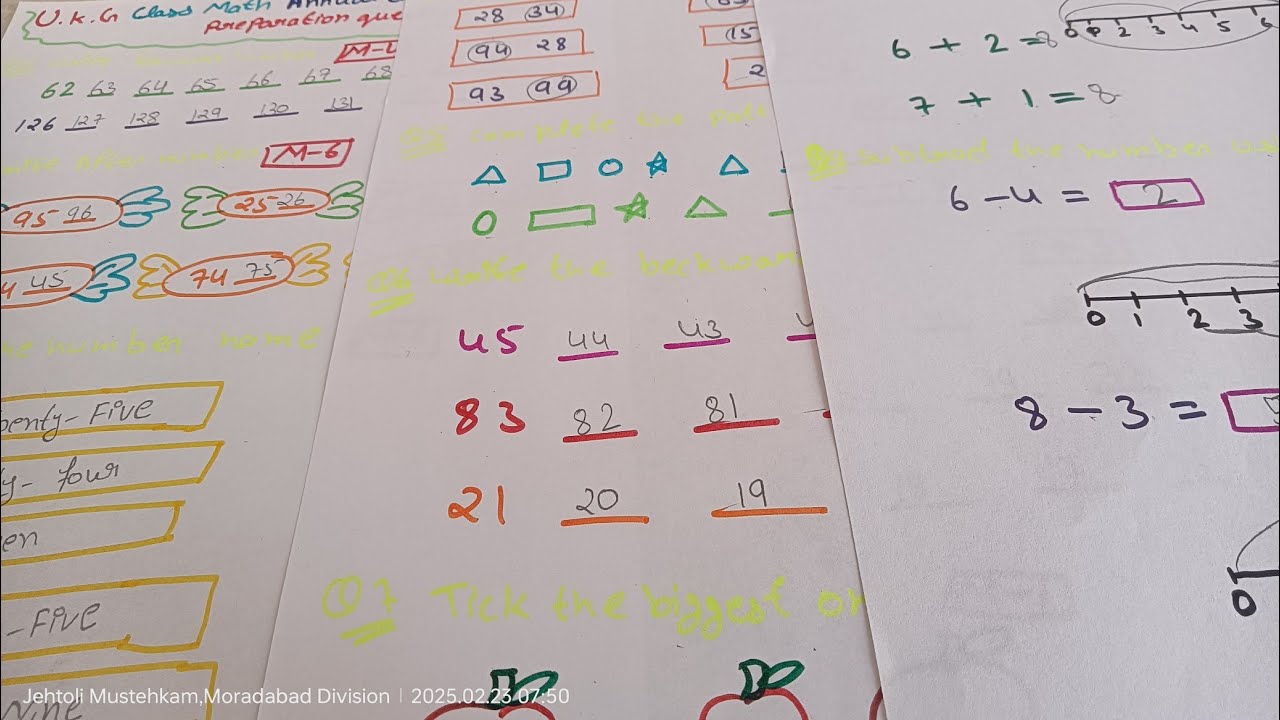 U.K.G Class Math Annual
Preparation que
M-
62 63 64 65 66 67 68
126 127 128 129 130 131
M-6
95 96 25 26
45 74 75
number name
enty-Five
y-four
en
-Five
Nine
28 34
94 28
93 99
15
2
Q5 complete the
Q6 write the backwar
45 44 43 4
83 82 81
21 20 19
Q7 Tick the biggest on
6 + 2 = 8
0 1 2 3 4 5 6
7 + 1 = 8
subtract the number
6 - 4 = 2
0 1 2 3
8 - 3 =
0
Jehtoli Mustehkam,Moradabad Division | 2025.02.23 07:50